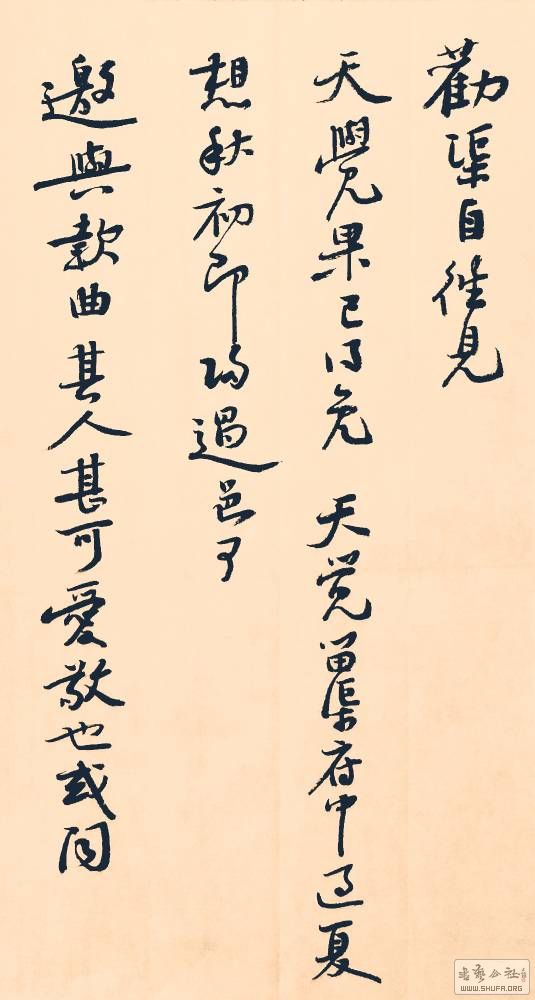 勸渠自往見
天覺果已得免 天覺留渠府中過夏
想秋初即歸過邑可
邀與款曲其人甚可愛敬也或同
書藝公社
WWW.SHUFA.ORG